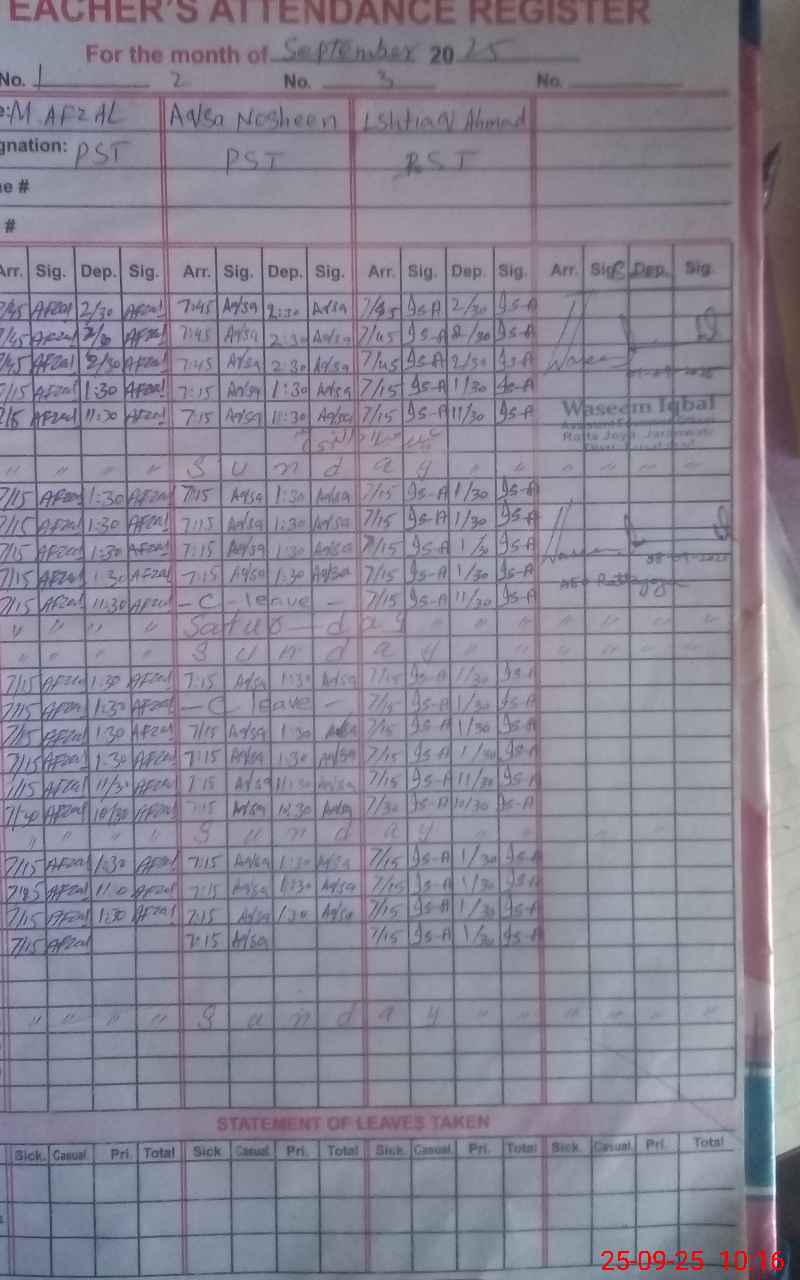 EACHER'S ATTENDANCE REGISTER
For the month of September 20 25
No. 1 2 No. 3 No.
e: M. AFZAL Aqsa Nosheen Ishtiaq Ahmad
gnation: PST PST PST
e #
#
Arr. Sig. Dep. Sig. Arr. Sig. Dep. Sig. Arr. Sig. Dep. Sig. Arr. Sig. Dep. Sig.
7/45 AFzal 2/30 AFzal 7:45 Aqsa 2:30 Aqsa 7/45 Is-A 2/30 Is-A
7/45 AFzal AFzal 7:45 Aqsa 2:30 Aqsa 7/45 Is-A 2/30 Is-A
7/45 AFzal 2/30 AFzal 7:45 Aqsa 2:30 Aqsa 7/45 Is-A 2/30 Is-A
7/15 AFzal 1:30 AFzal 7:15 Aqsa 1:30 Aqsa 7/15 Is-A 1/30 Is-A
AFzal 11:30 AFzal 7:15 Aqsa 11:30 Aqsa 7/15 Is-A 11/30 Is-A Waseem Iqbal
" " " " S u n d a y " " " " "
7/15 AFzal 1:30 AFzal 7:15 Aqsa 1:30 Aqsa 7/15 Is-A 1/30 Is-A
7/15 AFzal 1:30 AFzal 7:15 Aqsa 1:30 Aqsa 7/15 Is-A 1/30 Is-A
7/15 AFzal 1:30 AFzal 7:15 Aqsa 1:30 Aqsa 7/15 Is-A 1/30 Is-A
7/15 AFzal 1:30 AFzal 7:15 Aqsa 1:30 Aqsa 7/15 Is-A 1/30 Is-A
7/15 AFzal 11:30 AFzal - C - leave - 7/15 Is-A 11/30 Is-A
" " " " Satur - d a y " " " " " "
" " " " S u n d a y " " " " " "
7/15 AFzal 1:30 AFzal 7:15 Aqsa 1:30 Aqsa 7/15 Is-A 1/30 Is-A
7/15 AFzal 1:30 AFzal - C leave - 7/15 Is-A 1/30 Is-A
7/15 AFzal 1:30 AFzal 7/15 Aqsa 1:30 Aqsa 7/15 Is-A 1/30 Is-A
7/15 AFzal 1:30 AFzal 7:15 Aqsa 1:30 Aqsa 7/15 Is-A 1/30 Is-A
7/15 AFzal 11/30 AFzal 7:15 Aqsa 11:30 Aqsa 7/15 Is-A 11/30 Is-A
7/30 AFzal 10/30 AFzal Aqsa 10:30 Aqsa 7/30 Is-A 10/30 Is-A
" " " " S u n d a y " "
7/15 AFzal 1:30 AFzal 7:15 Aqsa 1:30 Aqsa 7/15 Is-A 1/30 Is-A
AFzal AFzal 7:15 Aqsa 1:30 Aqsa 7/15 Is-A 1/30 Is-A
7/15 AFzal 1:30 AFzal 7:15 Aqsa 1:30 Aqsa 7/15 Is-A 1/30 Is-A
7/15 AFzal 7:15 Aqsa 7/15 Is-A 1/30 Is-A
" " " " S u n d a y " " " " " "
STATEMENT OF LEAVES TAKEN
Sick. Casual. Pri. Total Sick Casual. Pri. Total Sick. Casual. Pri. Total Sick. Casual. Pri. Total
25-09-25 10:16